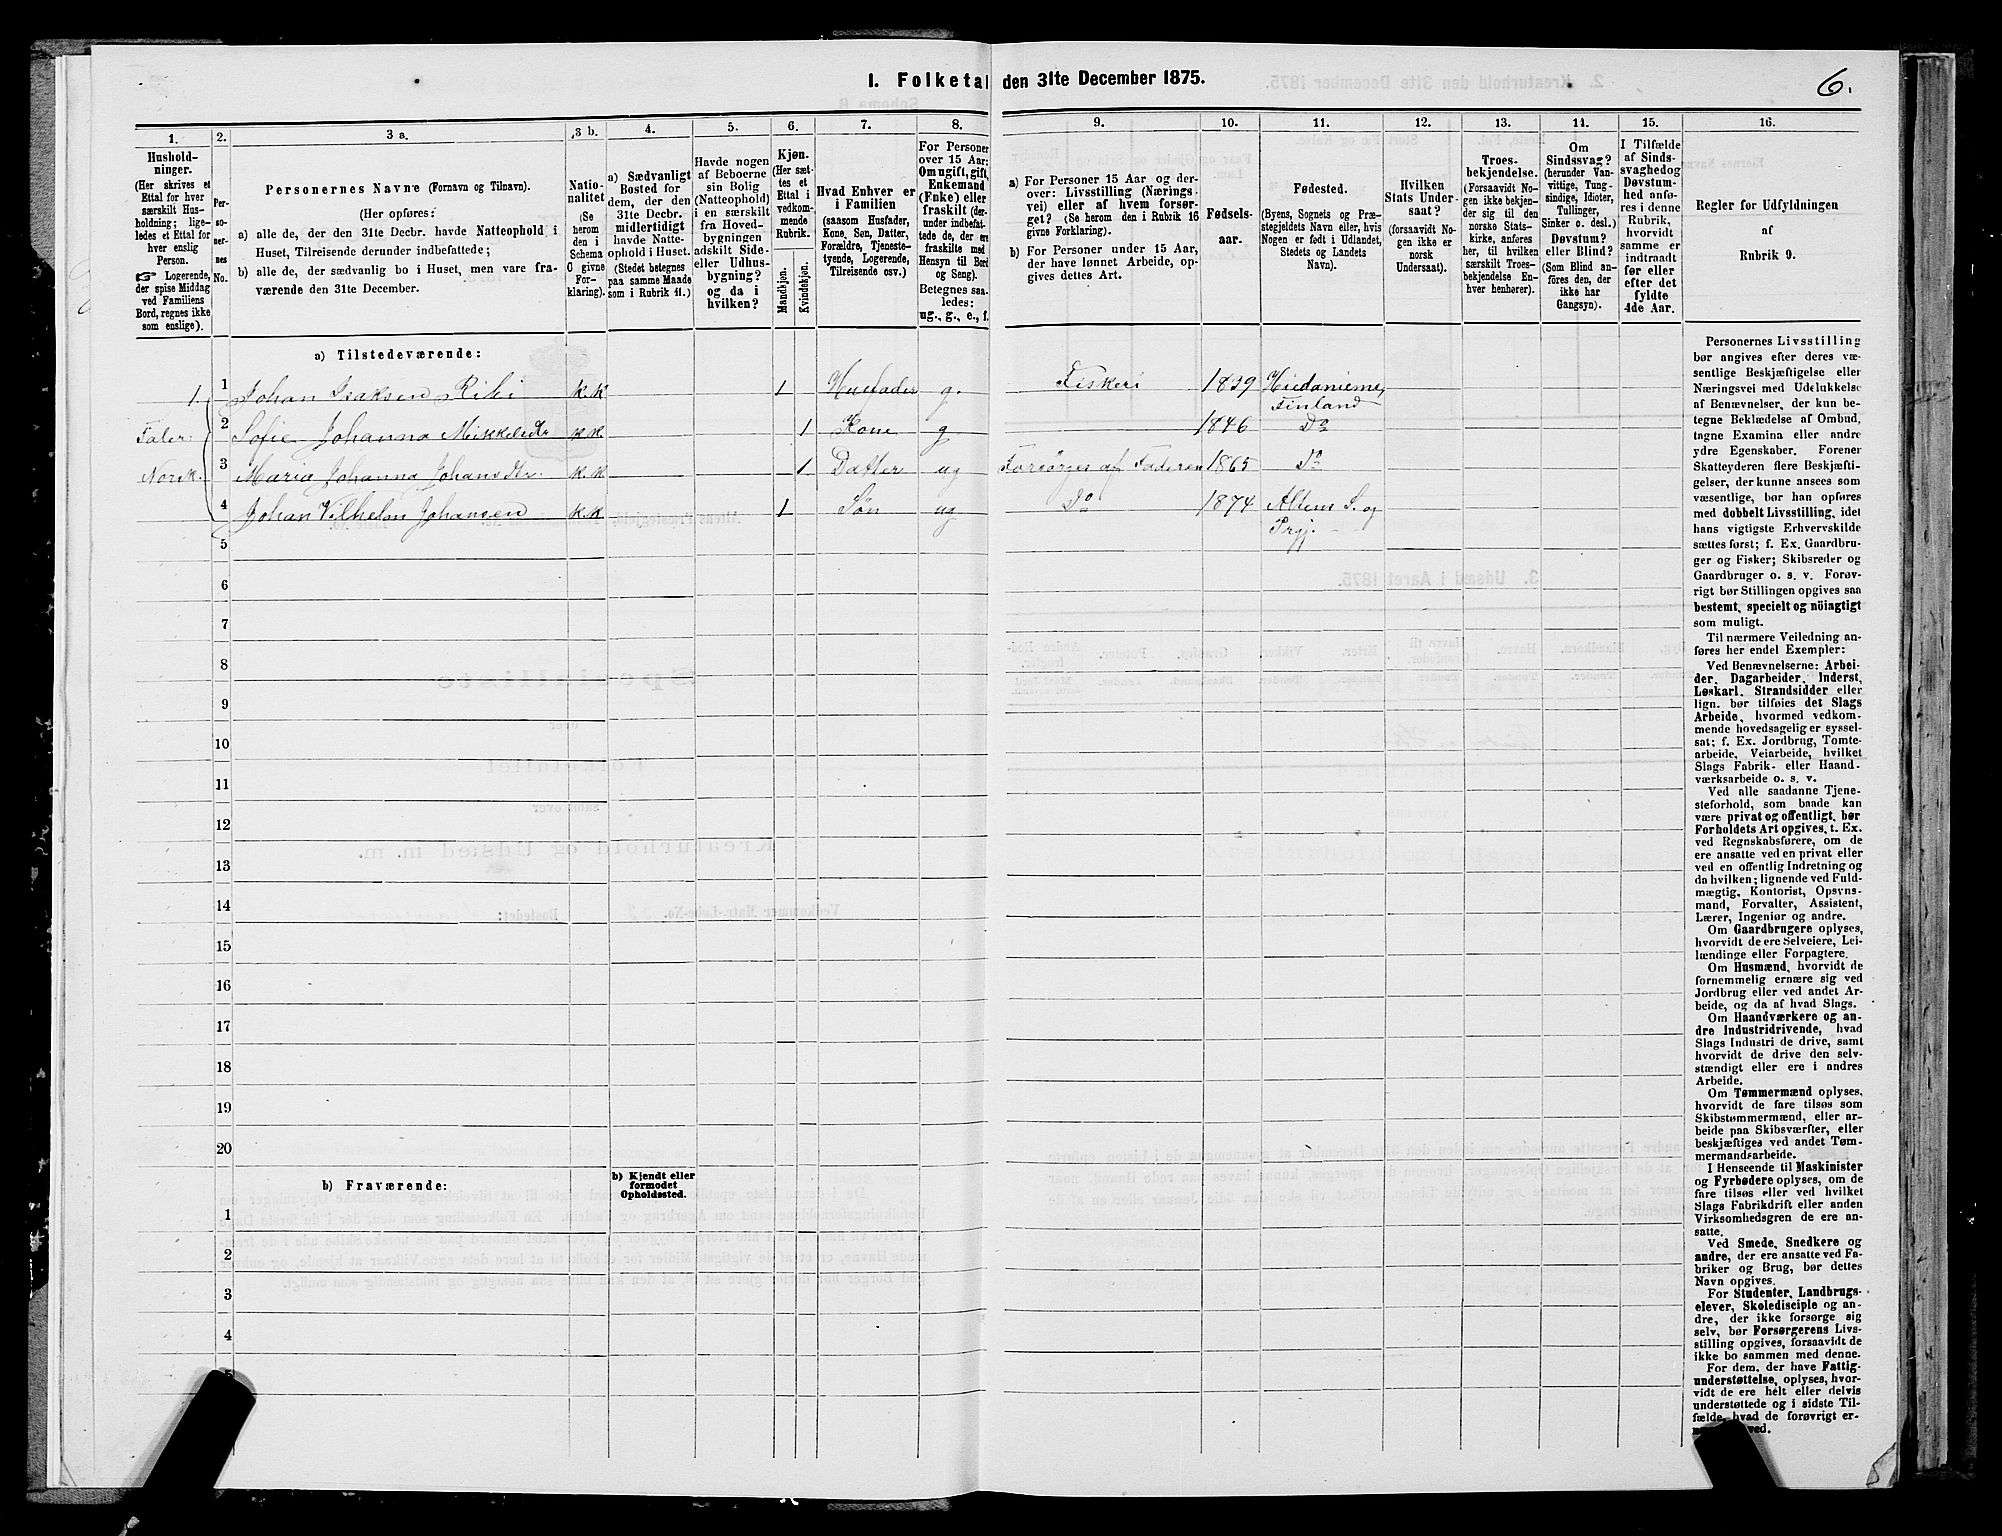 1. Folketal den 31te December 1875.
6.
1.
Hushold-
ninger.
(Her skrives et
Ettal for hver
særskilt Hus-
holdning; lige-
ledes et Ettal for
hver enslig
Person.
☞ Logerende,
der spise Middag
ved Familiens
Bord, regnes ikke
som enslige).
2.
Per-
so-
ner-
nes
No.
3 a.
Personernes Navne (Fornavn og Tilnavn).
(Her opføres:
a) alle de, der den 31te Decbr. havde Natteophold i
Huset, Tilreisende derunder indbefattede;
b) alle de, der sædvanlig bo i Huset, men vare fra-
værende den 31te December.
3 b.
Natio-
nalitet
(Se
herom
den i
Schema
C givne
For-
klaring).
4.
a) Sædvanligt
Bosted for
dem, der den
31te Decbr.
midlertidigt
havde Natte-
ophold i Huset.
(Stedet betegnes
paa samme Maade
som i Rubrik 11.)
5.
Havde nogen
af Beboerne
sin Bolig
(Natteophold)
i en særskilt
fra Hoved-
bygningen
adskilt Side-
eller Udhus-
bygning?
og da i
hvilken?
6.
Kjøn.
(Her sæt-
tes et
Ettal i
vedkom-
mende
Rubrik.
Mandkjøn.
Kvindekjøn.
7.
Hvad Enhver er
i Familien
(saasom Husfader,
Kone, Søn, Datter,
Forældre, Tjeneste-
tyende, Logerende,
Tilreisende osv.)
8.
For Personer
over 15 Aar:
Om ugift, gift,
Enkemand
(Enke) eller
fraskilt (der-
under indbefat-
tede de, der ere
fraskilte med
Hensyn til Bord
og Seng).
Betegnes saa-
ledes:
ug., g., e., f.
9.
a) For Personer 15 Aar og der-
over: Livsstilling (Nærings-
vei) eller af hvem forsør-
get? (Se herom den i Rubrik 16
givne Forklaring).
b) For Personer under 15 Aar,
der have lønnet Arbeide, op-
gives dettes Art.
10.
Fødsels-
aar.
11.
Fødested.
(Byens, Sognets og Præ-
stegjeldets Navn eller, hvis
Nogen er født i Udlandet,
Stedets og Landets
Navn).
12.
Hvilken
Stats Under-
saat?
(forsaavidt No-
gen ikke er
norsk
Undersaat).
13.
Troes-
bekjendelse.
(Forsaavidt No-
gen ikke bekjen-
der sig til den
norske Stats-
kirke, anføres
her, til hvilken
særskilt Troes-
bekjendelse En-
hver henhører).
14.
Om
Sindssvag?
(herunder Van-
vittige, Tung-
sindige, Idioter,
Tullinger,
Sinker o. desl.)
Døvstum?
eller Blind?
(Som Blind an-
føres den, der
ikke har
Gangsyn).
15.
I Tilfælde
af Sinds-
svaghed og
Døvstum-
hed anfø-
res i denne
Rubrik,
hvorvidt
samme er
indtraadt
før eller
efter det
fyldte
4de Aar.
16.
Regler for Udfyldningen
af
Rubrik 9.
a) Tilstedeværende:
1. 1 Johan Isaksen Ribi k.k 1 Husfader g. Fiskeri 1829 Hiedanieme,
Finland
Taler 2 Sofie Johanna Mikkelsdtr k.k. 1 Kone g 1846 Do
Norsk. 3 Maria Johanna Johansdtr. k.k 1 Datter ug Forsörges af Faderen 1865 Do
4 Johan Vilhelm Johansen k.k 1 Søn ug Do 1874 Altens S. og
Prgj.
5
6
7
8
9
10
11
12
13
14
15
16
17
18
19
20
b) Fraværende:
b) Kjendt eller
formodet
Opholdssted.
1
2
3
4
5
Personernes Livsstilling
bør angives efter deres væ-
sentlige Beskjæftigelse eller
Næringsvei med Udelukkelse
af Benævnelser, der kun be-
tegne Beklædelse af Ombud,
tagne Examina eller andre
ydre Egenskaber. Forener
Skatteyderen flere Beskjæfti-
gelser, der kunne ansees som
væsentlige, bør han opføres
med dobbelt Livsstilling, idet
hans vigtigste Erhvervskilde
sættes først; f. Ex. Gaardbru-
ger og Fisker; Skibsreder og
Gaardbruger o. s. v. Forøv-
rigt bør Stillingen opgives saa
bestemt, specielt og nöiagtigt
som muligt.
Til nærmere Veiledning an-
føres her endel Exempler:
Ved Benævnelserne: Arbei-
der, Dagarbeider, Inderst,
Løskarl, Strandsidder eller
lign. bør tilføies det Slags
Arbeide, hvormed vedkom-
mende hovedsagelig er syssel-
sat; f. Ex. Jordbrug, Tomte-
arbeide, Veiarbeide, hvilket
Slags Fabrik- eller Haand-
værksarbeide o. s. v.
Ved alle saadanne Tjene-
steforhold, som baade kan
være privat og offentligt, bør
Forholdets Art opgives, t. Ex.
ved Regnskabsførere, om de
ere ansatte ved en privat eller
ved en offentlig Indretning og
da hvilken; lignende ved Fuld-
mægtig, Kontorist, Opsyns-
mand, Forvalter, Assistent,
Lærer, Ingeniør og andre.
Om Gaardbrugere oplyses,
hvorvidt de ere Selveiere, Lei-
lændinge eller Forpagtere.
Om Husmænd, hvorvidt de
fornemmelig ernære sig ved
Jordbrug eller ved andet Ar-
beide, og da af hvad Slags.
Om Haandværkere og an-
dre Industridrivende, hvad
Slags Industri de drive, samt
hvorvidt de drive den selv-
stændigt eller ere i andres
Arbeide.
Om Tømmermænd oplyses,
hvorvidt de fare tilsøs som
Skibstømmermænd, eller ar-
beide paa Skibsværfter, eller
beskjæftiges ved andet Tøm-
mermandsarbeide.
I Henseende til Maskinister
og Fyrbødere oplyses, om de
fare tilsøs eller ved hvilket
Slags Fabrikdrift eller anden
Virksomhedsgren de ere an-
satte.
Ved Smede, Snedkere og
andre, der ere ansatte ved Fa-
briker og Brug, bør dettes
Navn opgives.
For Studenter, Landbrugs-
elever, Skoledisciple og an-
dre, der ikke forsørge sig
selv, bør Forsørgerens Livs-
stilling opgives, forsaavidt de
ikke bo sammen med denne.
For dem, der have Fattig-
understøttelse, oplyses, hvor-
vidt de ere helt eller delvis
understøttede og i sidste Til-
fælde, hvad de forøvrigt er-
ved.